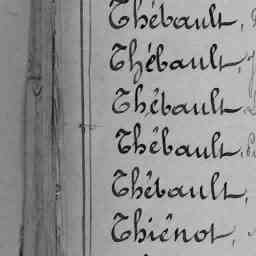 Thébault,
Thébault,
Thébault
Thébault,
Thébault,
Thiénot,